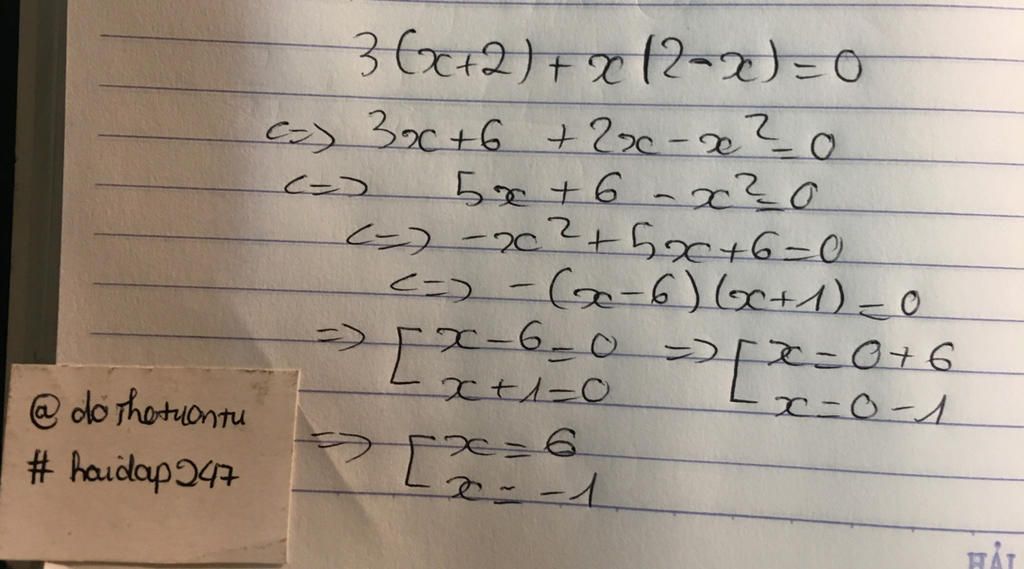 3(x+2) + x(2-x) = 0
<=> 3x + 6 + 2x - x² = 0
<=> 5x + 6 - x² = 0
<=> -x² + 5x + 6 = 0
<=> -(x-6)(x+1) = 0
=> [ x - 6 = 0 => [ x = 0 + 6
x + 1 = 0 x = 0 - 1
=> [ x = 6
x = -1
@ dothotuantu
# hoidap247
HẢI